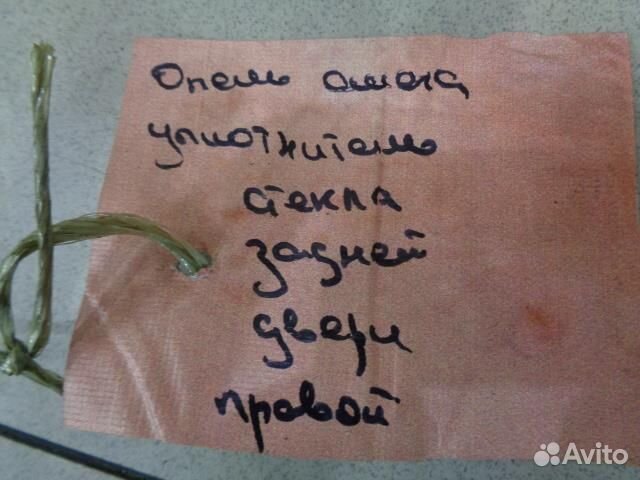 Опель омега
уплотнитель
стекла
задней
двери
правой
Avito